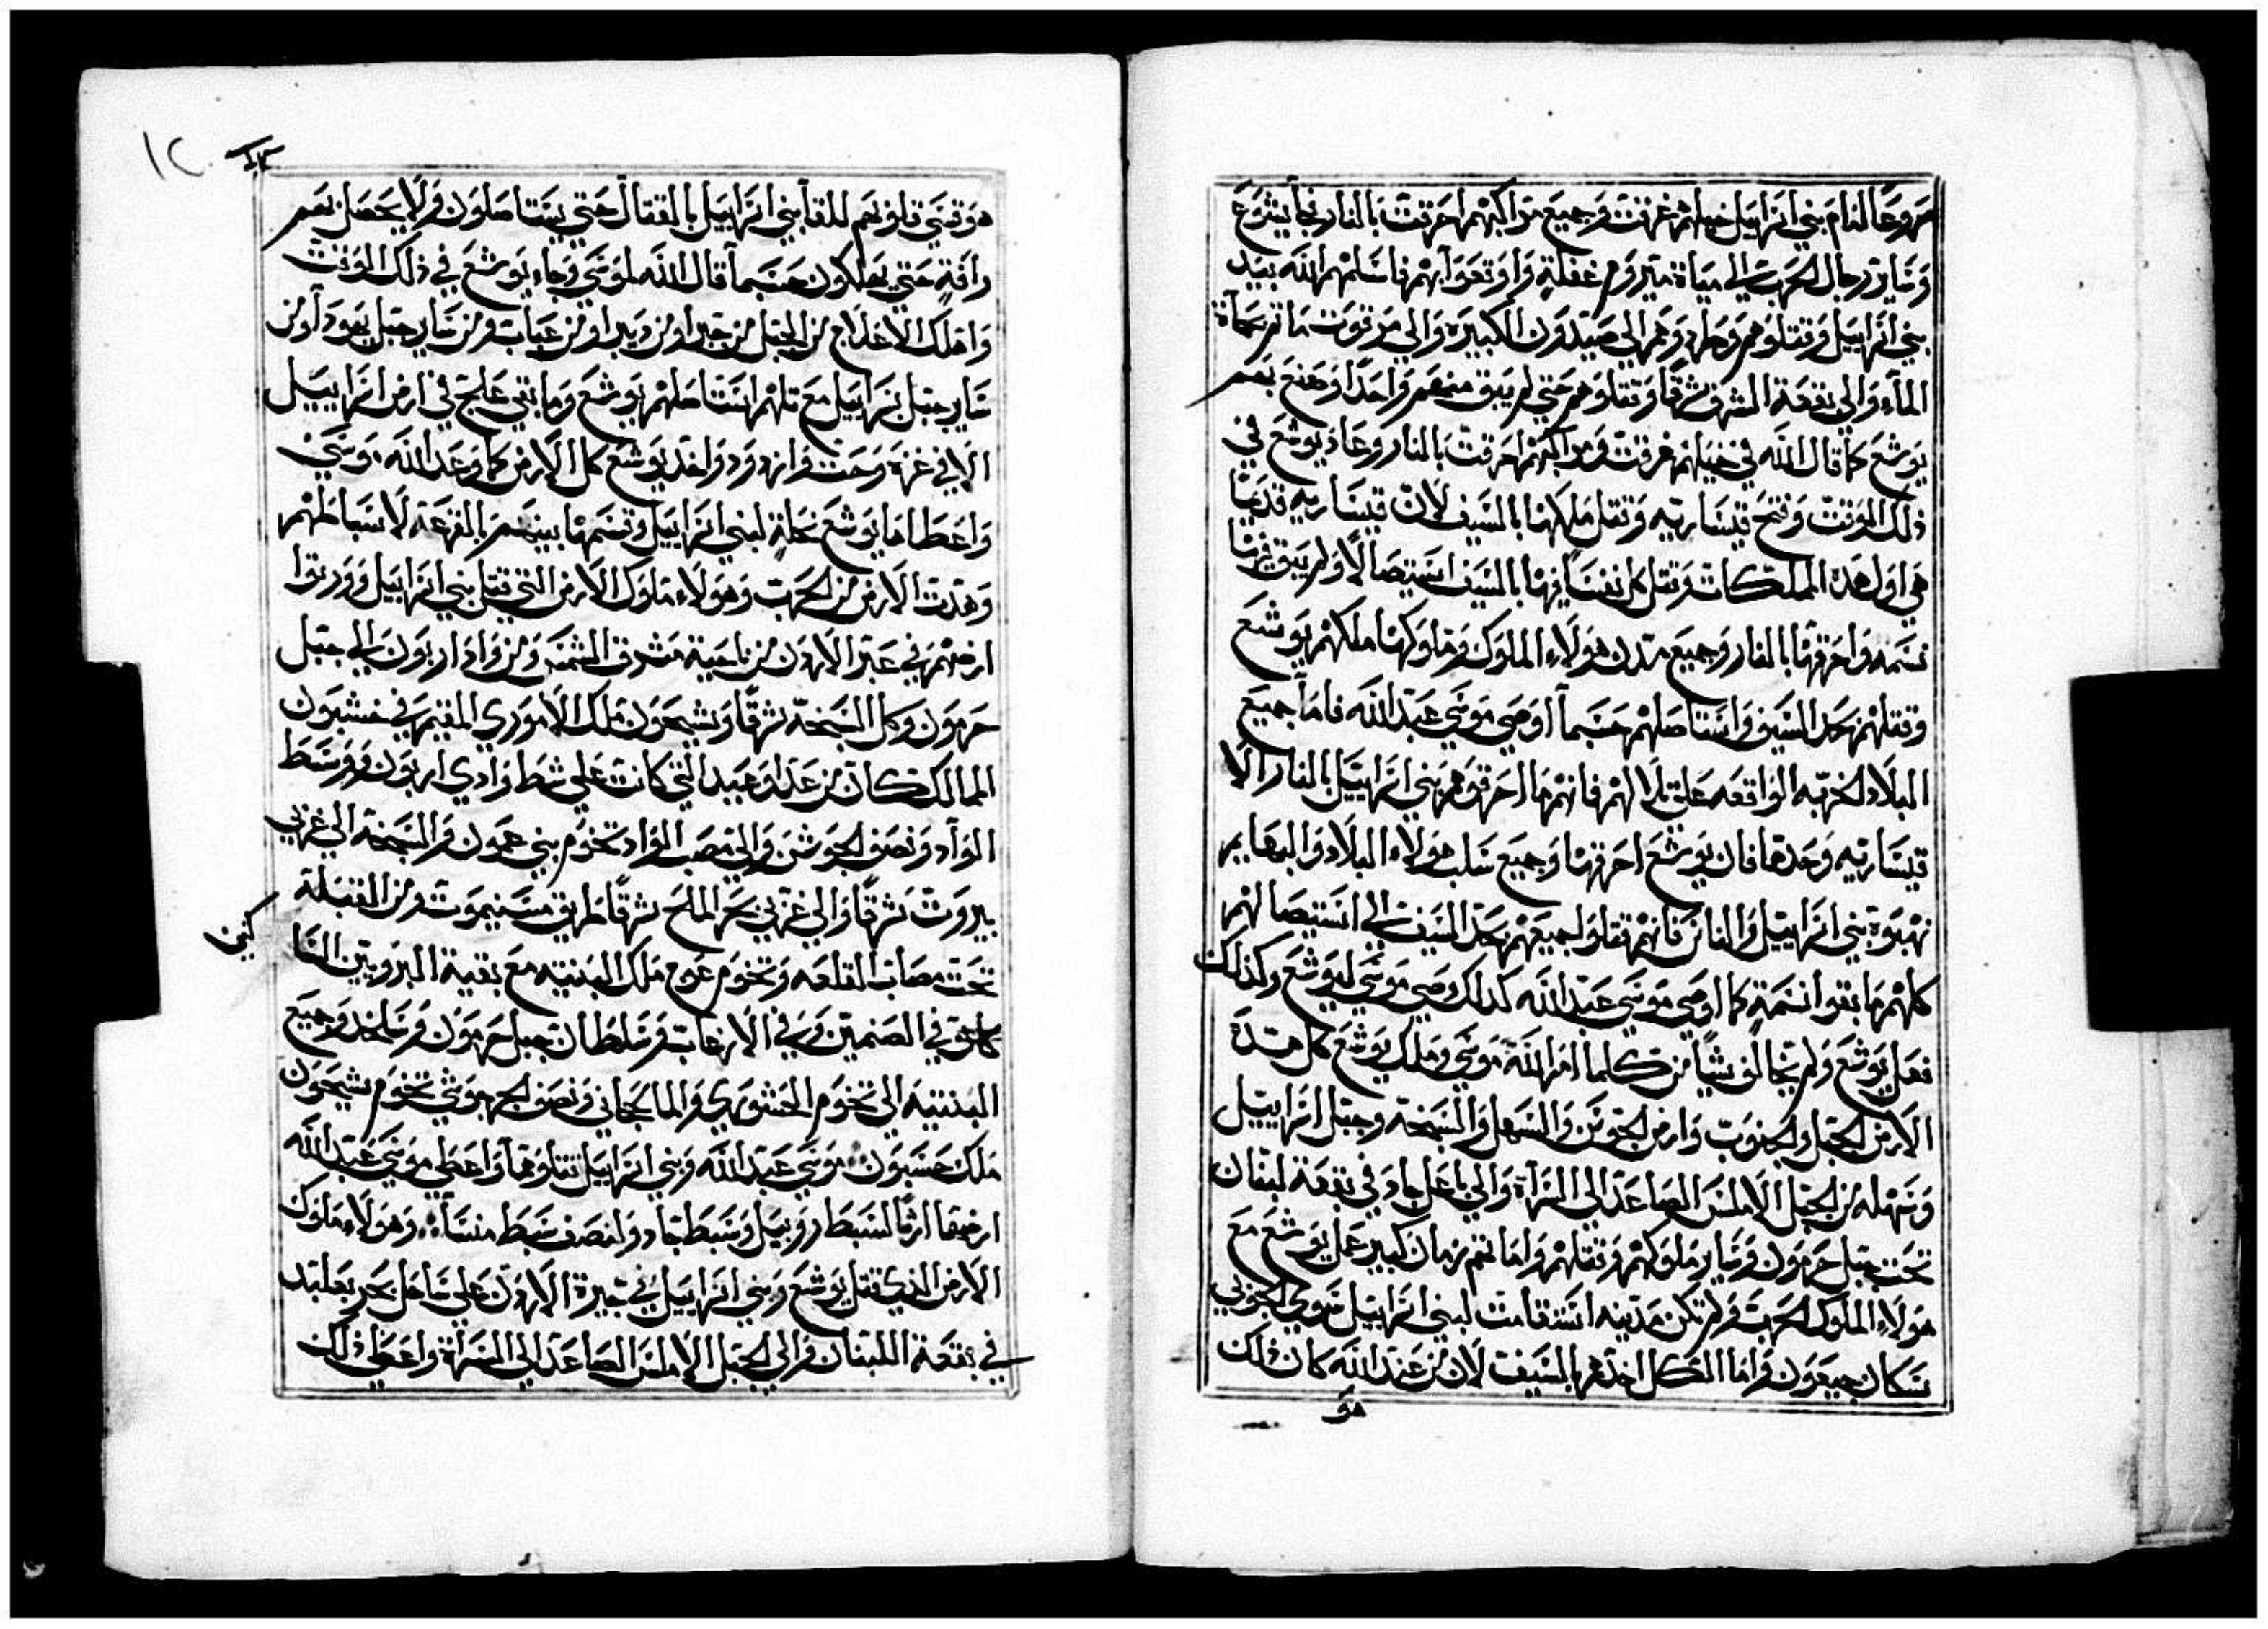 مروحا امام بني اسراييل خيلهم غرقت وجميع مراكبهم احرقت بالنار فجا يشوع
وساير رجال الحرب الي مياة ميروم غفلة واوقعوا بهم فاسلمهم الله بيد
بني اسراييل وقتلوهم وطردوهم الي صيدون الكبيرة والي مرقوت ماتم مجاة
الماء والي بقعة المشرق شرقا وقتلوهم حتي لم يبق منهم واحدا وصنع بهم
يوشع كما قال الله في خيلهم غرقت ومراكبهم احرقت بالنار وعاد يوشع في
ذلك الوقت وفتح قيساريه وقتل ملكها بالسيف لان قيساريه قديما
هي اول هذه المملكات وقتل كل نفسا فيها بالسيف استيصالا ولم يبق فيها
نسمه واحرقها بالنار وجميع مدن هولاء الملوك وملوكها ملكهم يوشع
وقتلهم بحد السيف واستاصلهم حسبما اوصي موسي عبد الله فاما جميع
البلاد الخربه الواقعه علي تلالهم فانهم ما احرقوهم بني اسراييل بالنار الا
قيساريه وحدها فان يوشع احرقها وجميع سلب هولاء البلاد والبهايم
نهبوة بني اسراييل والناس فانهم قتلوا جميعهم بحد السيف الي استيصالهم
كلهم ما بقوا نسمة كما اوصي موسي عبد الله كذلك وصي موسي ليوشع وكذلك
فعل يوشع ولم يخالف شيا من كلما امر الله موسي وملك يوشع كل هذة
الارض الجبل والجنوب وارض الجوشن والسهل والسبخة وجبل اسراييل
وسهله من الجبل الاملس الصاعد الي السراة والي باعل جاد في بقعة لبنان
تحت جبل حرمون وساير ملوكهم وقتلهم ولما تم زمان كبير عمل يوشع مع
هولاء الملوك الحرب ولم تكن مدينه استقامت لبني اسراييل سوي الجوني
سكان جبعون واما الكل اخذهم بالسيف لان من عند الله كان ذلك
هو
١٢
هو تقسي قلوبهم للقا بني اسراييل بالقتال حتي يستاصلون ولا يحصل بهم
رافة حتي يهلكون حسبما قال الله لموسي وجاء يوشع في ذلك الوقت
واهلك الاغلاج من الجبل من حبرا ومن دبير اومن عباب ومن ساير جبل يهودا ومن
ساير جبل اسراييل مع تلهم استاصلهم يوشع وما بقي علج في ارض اسراييل
الا في غزة وحت وازدود واخذ يوشع كل الارض كما وعد الله موسي
واعطاها يوشع نحلة لبني اسراييل وقسمها بينهم بالقرعة لاسباطهم
وهدت الارض من الحرب وهولاء ملوك الارض التي قتل بني اسراييل وورثوا
ارضهم في عبر الاردن من ناحية مشرق الشمس ومن واد اربون الي جبل
حرمون وكل السبخة شرقا وشيحون ملك الاموري المقيم في حشبون
الممالك كان من عداوعبيد التي كانت علي شط وادي اربون ووسط
الواد ونصف الجوشن والي مصب الواد تخوم بني عمون والسبخة الي غربي
بيروت شرقا والي غربي بحر الملح شرقا طريق مسيموت ومن القبلة
تحت مصاب القلعه وتخوم عوج ملك البثنيه مع بقية البروبين السا
كنين
كاعوق في الصنمين وفي الازعاب وسلطان جبل حرمون وساخد وجميع
البثنيه الي تخوم الحشوري والماعجاني ونصف الجرموشي تخوم شيحون
ملك حشبون موسي عبد الله وبني اسراييل قتلوهما واعطي موسي عبد الله
ارضها ارثا لسبط روبيل وسبط جاد ولنصف سبط منسا وهولاء ملوك
الارض الذي قتل يوشع وبني اسراييل في جيرة الاردن علي ساحل بحر بعلبد
في بقعة اللبنان والي الجبل الاملس الصاعد الي السراة واعطي ذلك